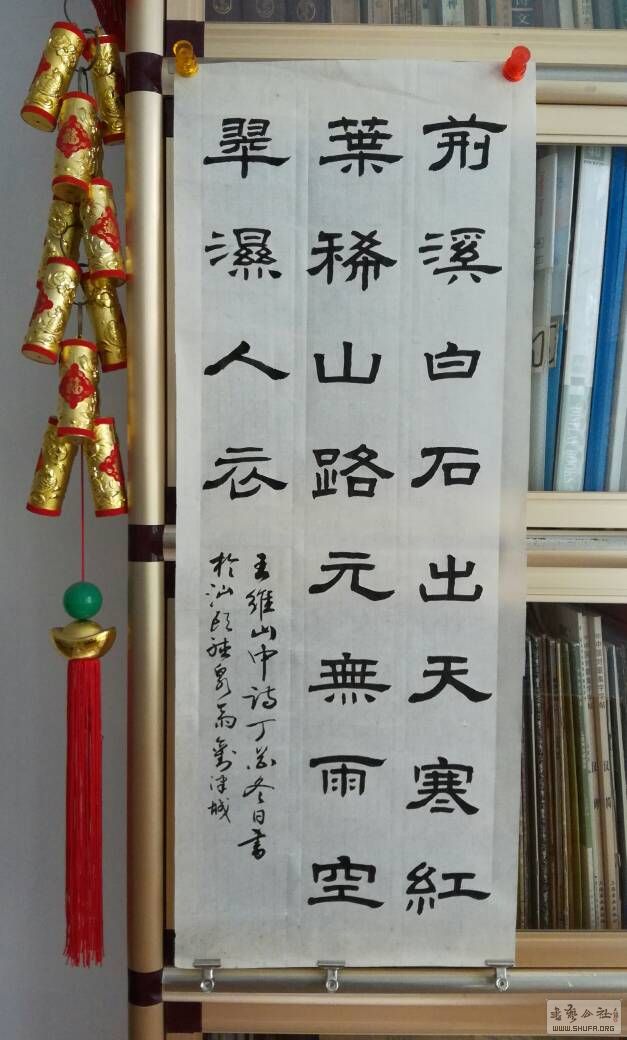 荊溪白石出天寒紅
葉稀山路元無雨空
翠濕人衣
王維山中詩丁酉冬日書
於汕頭
書藝公社
WWW.SHUFA.ORG